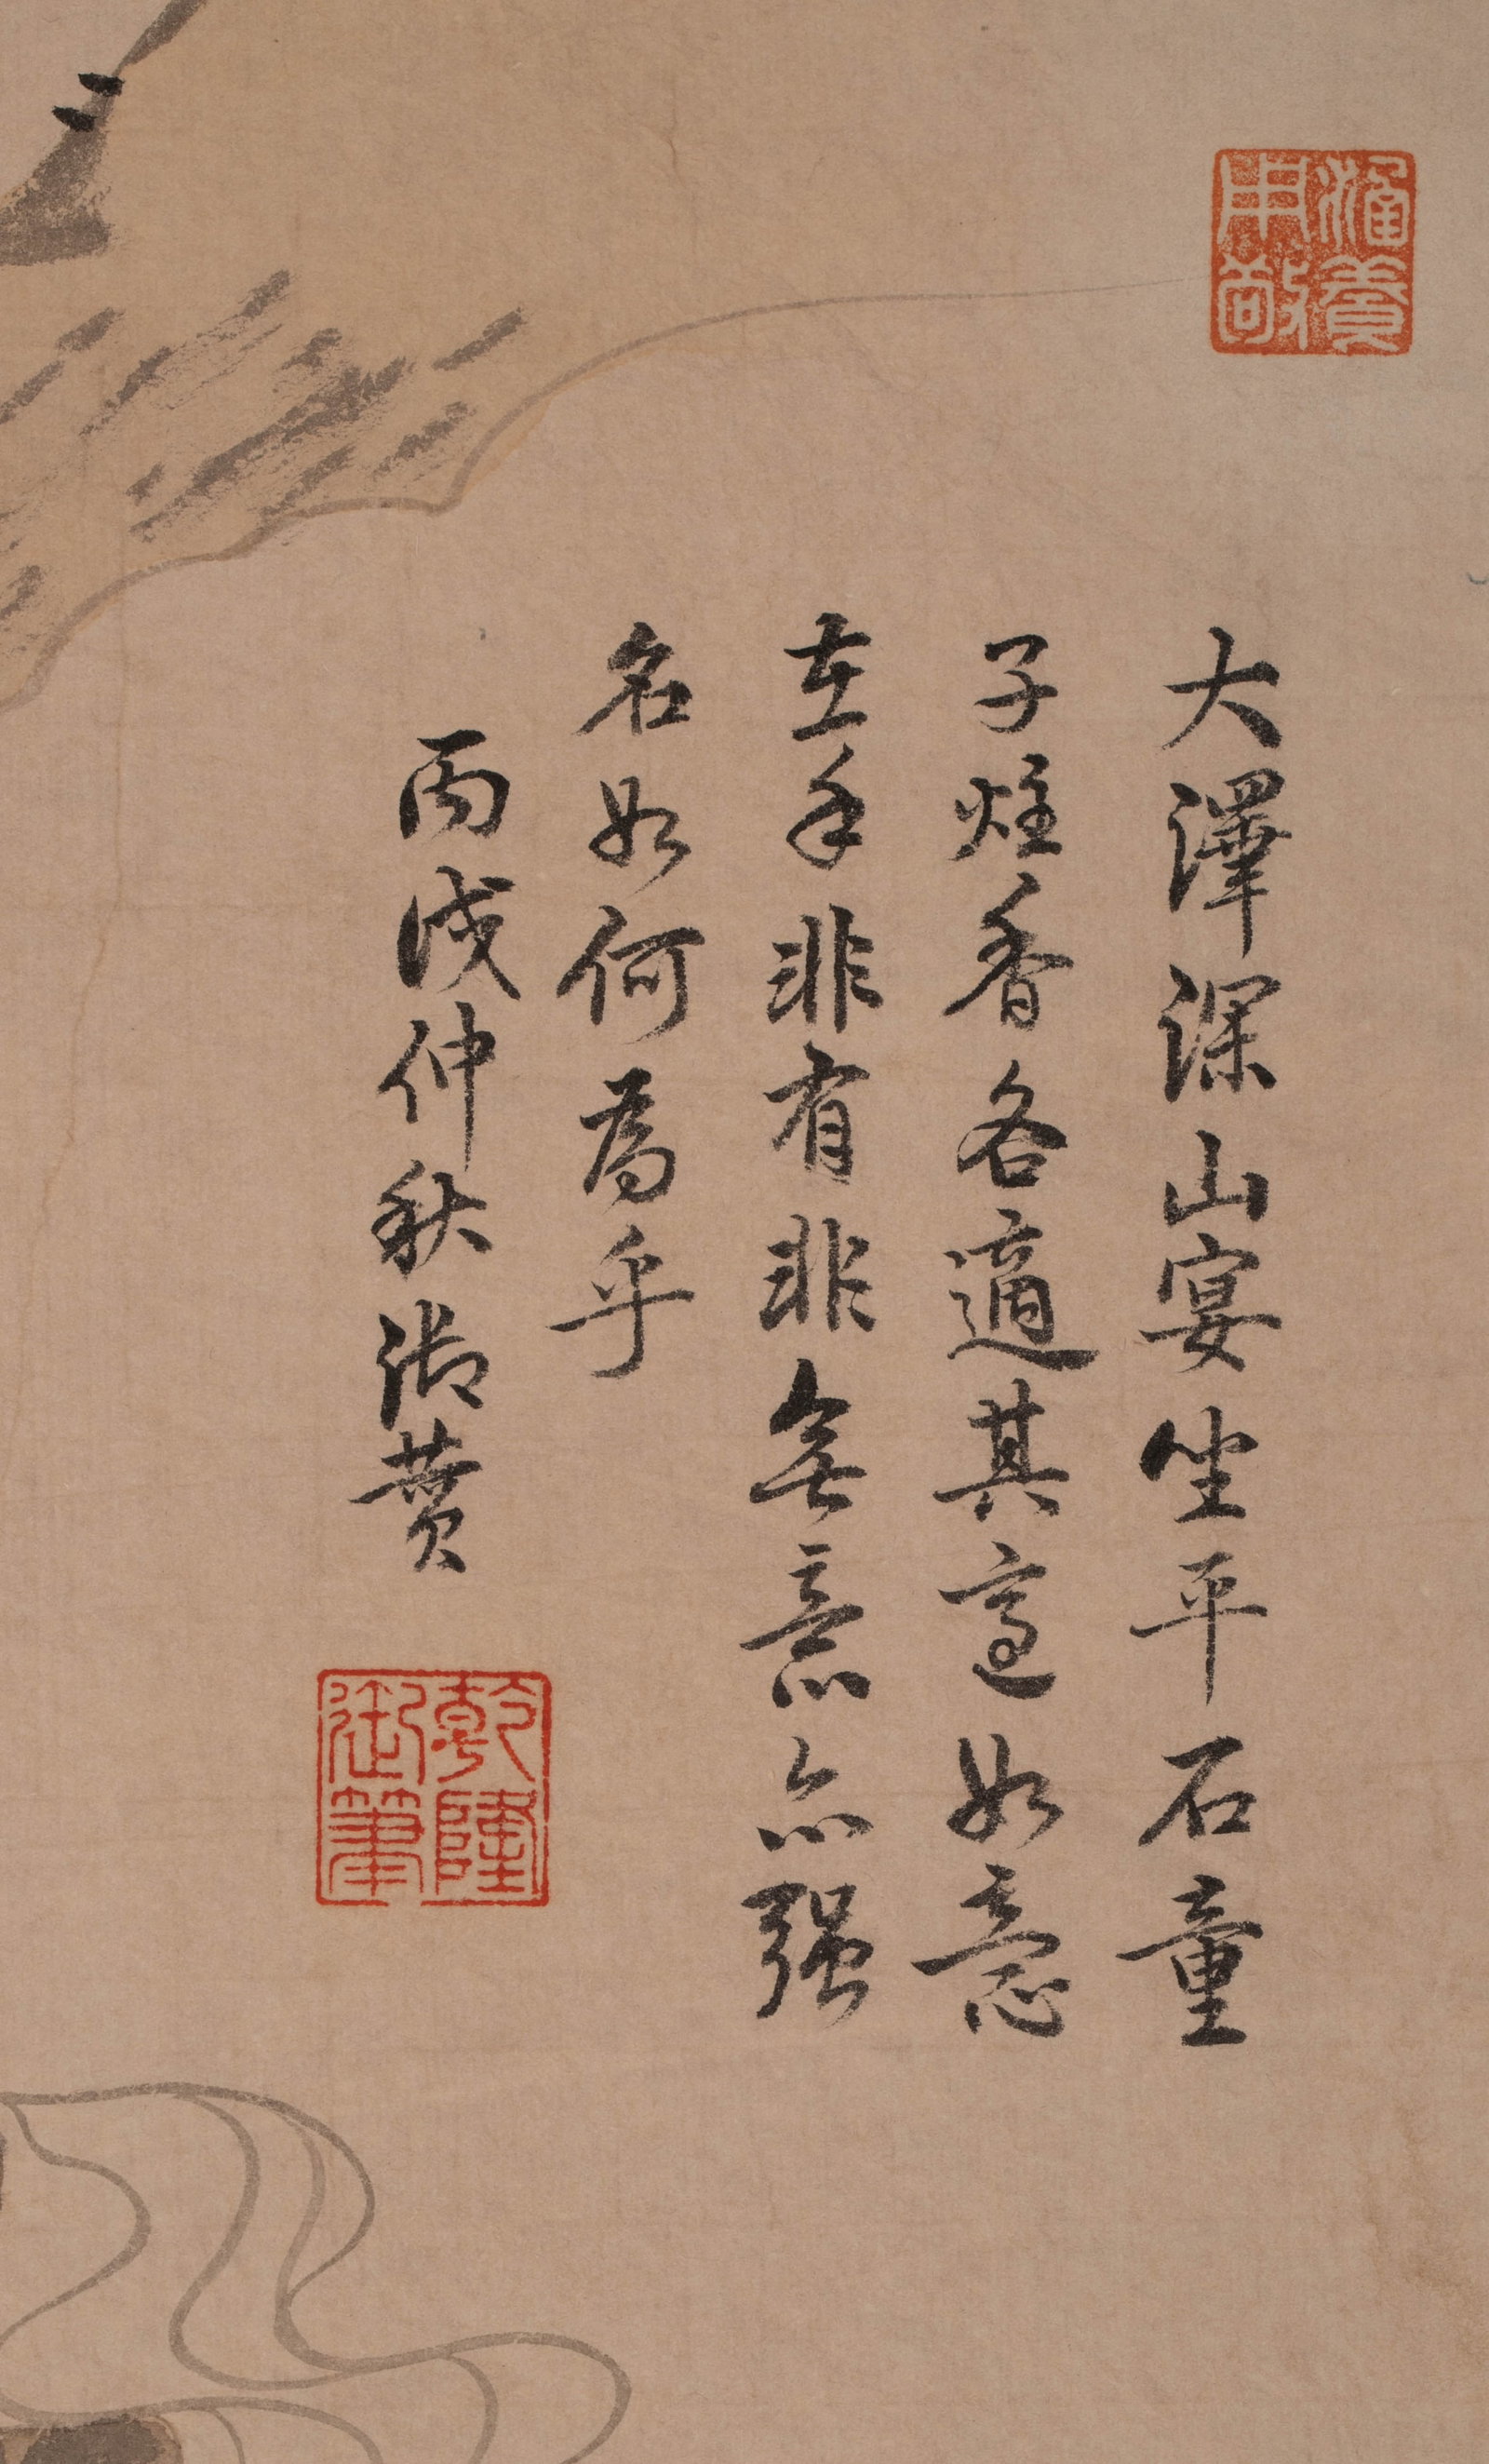 涵養用敬
大澤深山宴坐平石童
子炷香各適其適如意
在手非有非無意亦强
名如何為乎
丙戌仲秋御贊
乾隆御筆